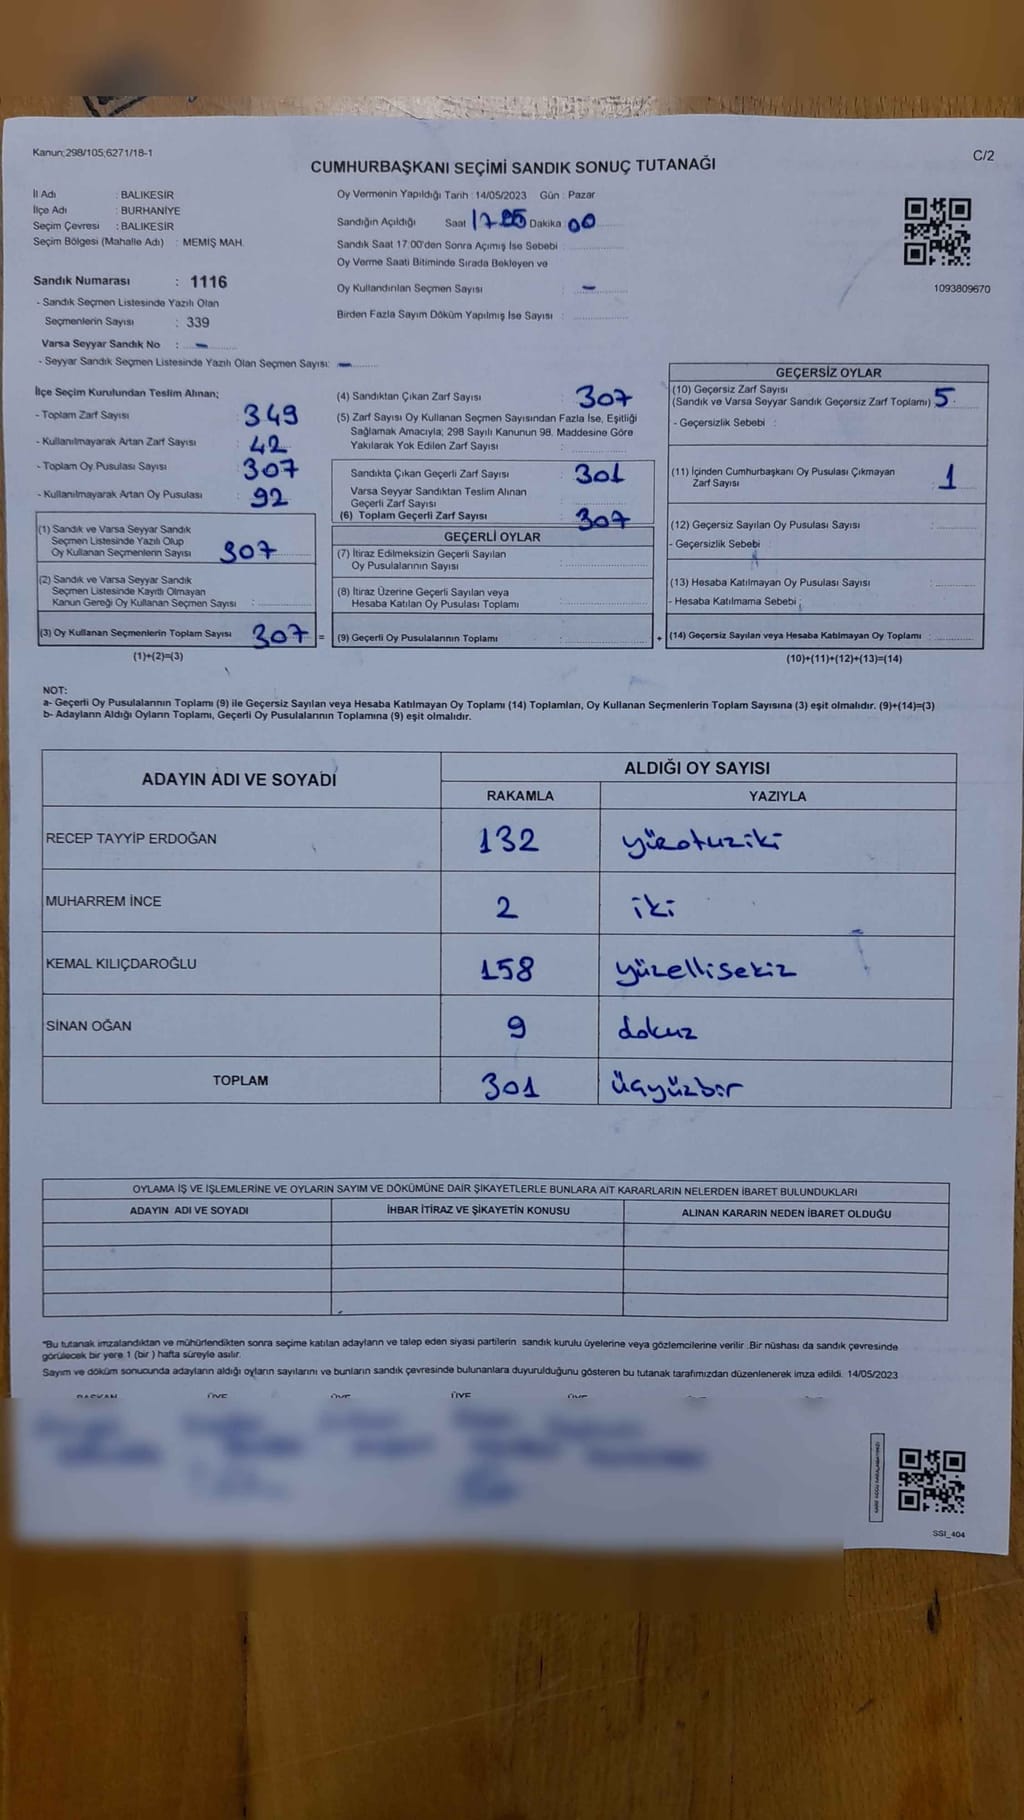 Kanun;298/105;6271/18-1
C/2
CUMHURBAŞKANI SEÇİMİ SANDIK SONUÇ TUTANAĞI
İl Adı : BALIKESİR
İlçe Adı : BURHANİYE
Seçim Çevresi : BALIKESİR
Seçim Bölgesi (Mahalle Adı) : MEMİŞ MAH.
Sandık Numarası : 1116
- Sandık Seçmen Listesinde Yazılı Olan
Seçmenlerin Sayısı : 339
Varsa Seyyar Sandık No : -
- Seyyar Sandık Seçmen Listesinde Yazılı Olan Seçmen Sayısı: -
Oy Vermenin Yapıldığı Tarih : 14/05/2023 Gün : Pazar
Sandığın Açıldığı Saat Dakika 00
Sandık Saat 17:00'den Sonra Açımış İse Sebebi :
Oy Verme Saati Bitiminde Sırada Bekleyen ve
Oy Kullandırılan Seçmen Sayısı : -
Birden Fazla Sayım Döküm Yapılmış İse Sayısı :
1093809670
İlçe Seçim Kurulundan Teslim Alınan;
- Toplam Zarf Sayısı : 349
- Kullanılmayarak Artan Zarf Sayısı : 42
- Toplam Oy Pusulası Sayısı : 307
- Kullanılmayarak Artan Oy Pusulası : 92
(1) Sandık ve Varsa Seyyar Sandık
Seçmen Listesinde Yazılı Olup
Oy Kullanan Seçmenlerin Sayısı 307
(2) Sandık ve Varsa Seyyar Sandık
Seçmen Listesinde Kayıtlı Olmayan
Kanun Gereği Oy Kullanan Seçmen Sayısı :
(3) Oy Kullanan Seçmenlerin Toplam Sayısı 307 =
(1)+(2)=(3)
(4) Sandıktan Çıkan Zarf Sayısı : 307
(5) Zarf Sayısı Oy Kullanan Seçmen Sayısından Fazla İse, Eşitliği
Sağlamak Amacıyla; 298 Sayılı Kanunun 98. Maddesine Göre
Yakılarak Yok Edilen Zarf Sayısı :
Sandıkta Çıkan Geçerli Zarf Sayısı : 301
Varsa Seyyar Sandıktan Teslim Alınan
Geçerli Zarf Sayısı :
(6) Toplam Geçerli Zarf Sayısı : 307
GEÇERLİ OYLAR
(7) İtiraz Edilmeksizin Geçerli Sayılan
Oy Pusulalarının Sayısı :
(8) İtiraz Üzerine Geçerli Sayılan veya
Hesaba Katılan Oy Pusulası Toplamı :
(9) Geçerli Oy Pusulalarının Toplamı : +
GEÇERSİZ OYLAR
(10) Geçersiz Zarf Sayısı
(Sandık ve Varsa Seyyar Sandık Geçersiz Zarf Toplamı) 5
- Geçersizlik Sebebi :
(11) İçinden Cumhurbaşkanı Oy Pusulası Çıkmayan
Zarf Sayısı : 1
(12) Geçersiz Sayılan Oy Pusulası Sayısı :
- Geçersizlik Sebebi :
(13) Hesaba Katılmayan Oy Pusulası Sayısı :
- Hesaba Katılmama Sebebi ;
(14) Geçersiz Sayılan veya Hesaba Katılmayan Oy Toplamı :
(10)+(11)+(12)+(13)=(14)
NOT:
a- Geçerli Oy Pusulalarının Toplamı (9) ile Geçersiz Sayılan veya Hesaba Katılmayan Oy Toplamı (14) Toplamları, Oy Kullanan Seçmenlerin Toplam Sayısına (3) eşit olmalıdır. (9)+(14)=(3)
b- Adayların Aldığı Oyların Toplamı, Geçerli Oy Pusulalarının Toplamına (9) eşit olmalıdır.
ADAYIN ADI VE SOYADI
ALDIĞI OY SAYISI
RAKAMLA YAZIYLA
RECEP TAYYİP ERDOĞAN 132 yüzotuziki
MUHARREM İNCE 2 iki
KEMAL KILIÇDAROĞLU 158 yüzellisekiz
SİNAN OĞAN 9 dokuz
TOPLAM 301 üçyüzbir
OYLAMA İŞ VE İŞLEMLERİNE VE OYLARIN SAYIM VE DÖKÜMÜNE DAİR ŞİKAYETLERLE BUNLARA AİT KARARLARIN NELERDEN İBARET BULUNDUKLARI
ADAYIN ADI VE SOYADI İHBAR İTİRAZ VE ŞİKAYETİN KONUSU ALINAN KARARIN NEDEN İBARET OLDUĞU
*Bu tutanak imzalandıktan ve mühürlendikten sonra seçime katılan adayların ve talep eden siyasi partilerin sandık kurulu üyelerine veya gözlemcilerine verilir. Bir nüshası da sandık çevresinde
görülecek bir yere 1 (bir ) hafta süreyle asılır.
Sayım ve döküm sonucunda adayların aldığı oyların sayılarını ve bunların sandık çevresinde bulunanlara duyurulduğunu gösteren bu tutanak tarafımızdan düzenlenerek imza edildi. 14/05/2023
BAŞKAN ÜYE ÜYE ÜYE ÜYE
SSI_404